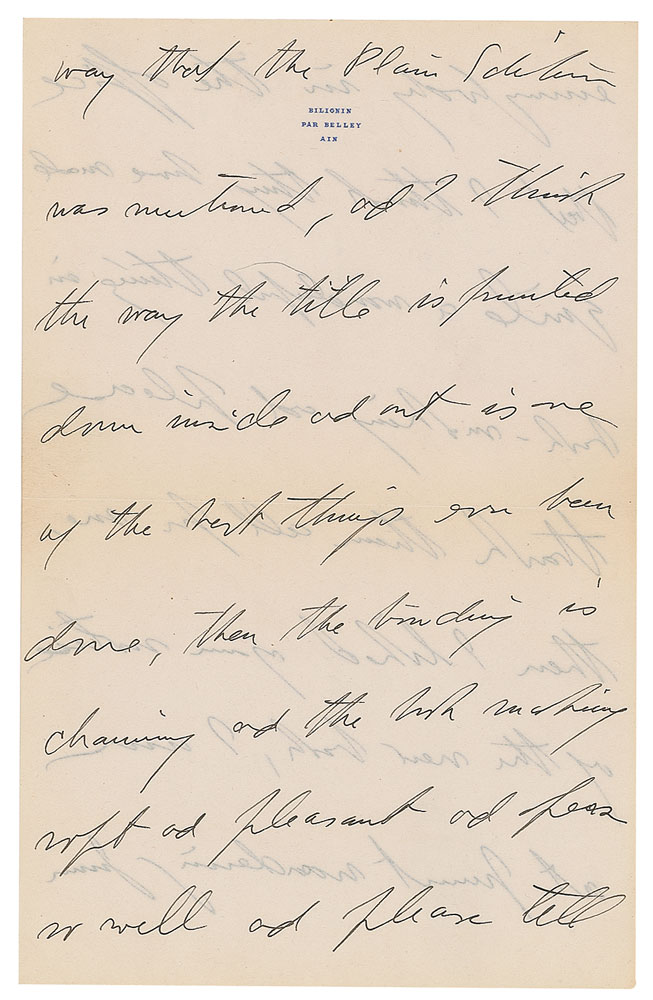 way that the Plain Edition
BILIGNIN
PAR BELLEY
AIN
was mentioned, and I think
the way the title is printed
down inside and out is one
of the best things ever been
done, then the binding is
charming and the book making
soft and pleasant and
so well and please tell